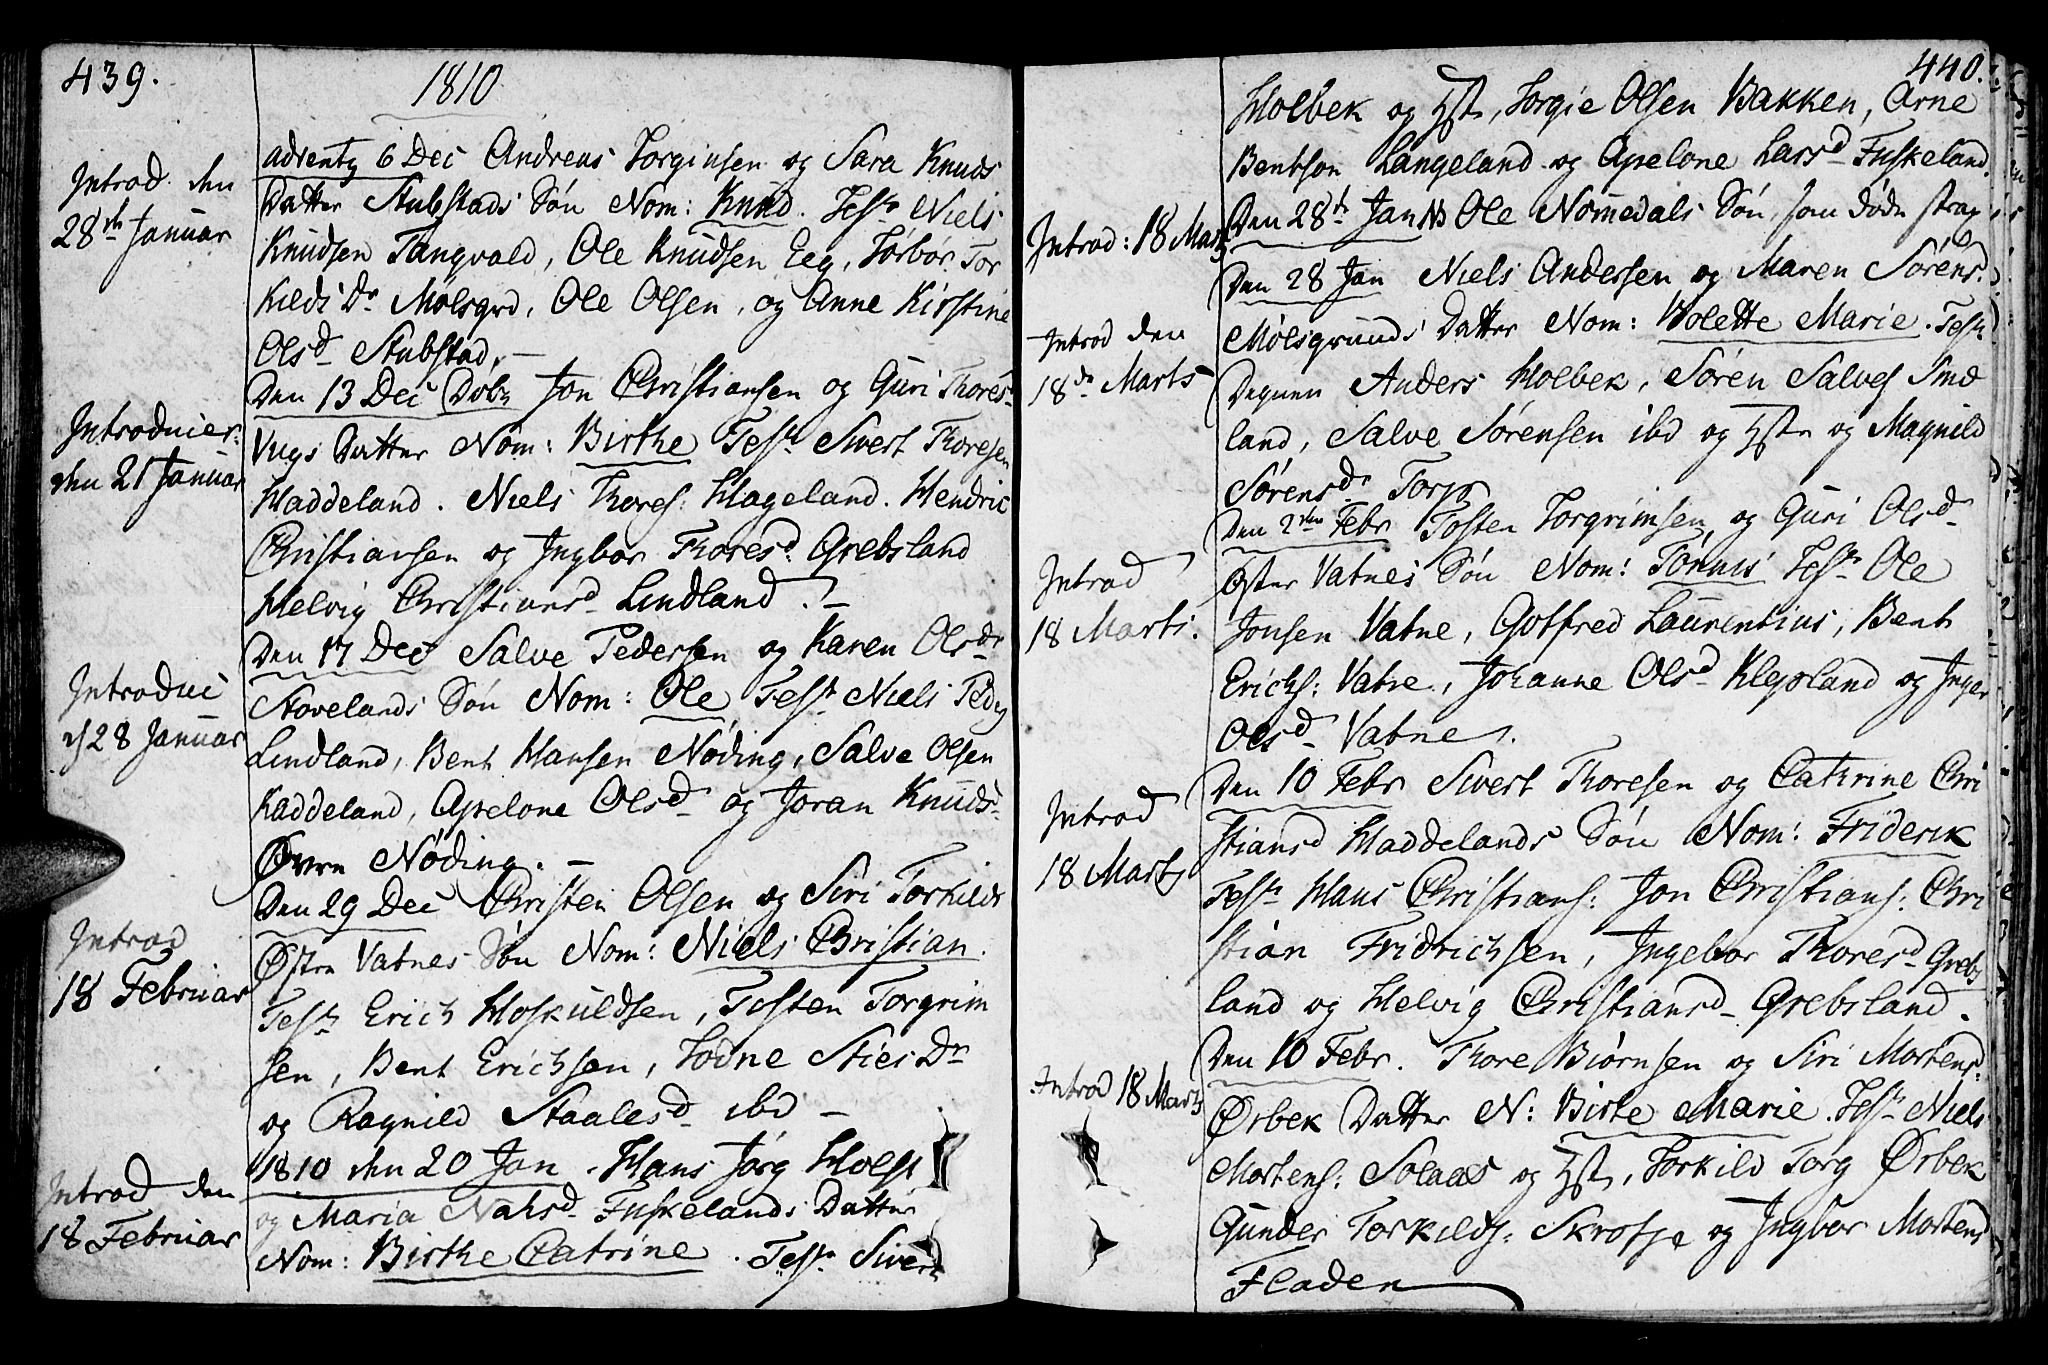 439.
1810
Introd. den
28de Januar
adventz 6 Dec Andreas Torginsen og Sara Knuds
Datter Stubstads Søn Nom: Knud. Test: Niels
Knudsen Tangvald, Ole Knudsen Eeg, Torbor Tor
kilds Dr Mølsgrd, Ole Olsen, og Anne Kirstine
Olsd Stubstad. —
Introducer:
den 21 Januar
Den 13 Dec Døbt Jon Christiansen og Guri Thoresd
Vegs Datter Nom: Birthe Test: Sivert Thoresen
Haddeland. Niels Thores: Hageland. Hendric
Christiansen og Ingbor Thoresd Grebsland
Helvig Christiansd Lindland. —
Introduc
d 28 Januar
Den 17 Dec Salve Pedersen og Karen Olsdr
Stovelands Søn Nom: Ole Test: Niels Peders
Lindland, Bent Hansen Nøding, Salve Olsen
Kaddeland, Apelone Olsd og Joran Knudsd
Øvre Nøding. —
Introd
18 Februar
Den 29 Dec Christen Olsen og Siri Torkilds
Østre Vatnes Søn Nom: Niels Christian.
Test: Erich Hoskuldsen, Tosten Torgrim
sen, Bent Erichsen, Todne Sties Dr
og Ragnild Staalesd ibd —
Introd den
18 Februar
1810 den 20 Jan. Hans Jørg Holst
og Maria Nahsd Fuskelands Datter
Nom: Birthe Catrine. Test: Sivert
440.
Holbek og Hst, Torgie Olsen Bakken, Arne
Bentson Langeland og Apelone Larsd Fuskeland.
Introd: 18 Marts
Den 28de Jan Ole Nomedals Søn, som døde strax
Introd den
18de Marts
Den 28 Jan Niels Andersen og Maren Sørensd
Mølsgrunds Datter Nom: Bolette Marie. Test:
Degnen Anders Holbek, Søren Salves Smd
land, Salve Sørensen ibd og Hstr og Magnild
Sørensd Torp
Introd
18 Marts.
Den 2den Febr Tosten Torgrimsen og Guri Olsd
Øster Vatnes Søn Nom: Tønnis Test: Ole
Jonsen Vatne, Gotfred Laurentius, Bent
Erichs: Vatne, Johanne Olsd Klepland og Inger
Olsd Vatne.
Introd
18 Marts
Den 10 Febr Sivert Thoresen og Cathrine Chri
stiansd Haddelands Søn Nom: Friderik
Test: Hans Christians: Jon Christians: Chri
stian Fridrichsen, Ingebor Thoresd Grebs
land og Helvig Christiansd Grebsland.
Introd 18 Marts
Den 10 Febr. Thore Biørnsen og Siri Mortensd
Ørbek Datter N: Birte Marie. Test: Niels
Mortens: Solaas og Hst, Torkild Torg Ørbek
Gunder Torkilds: Skrofje og Ingbor Mortensd
Fladen